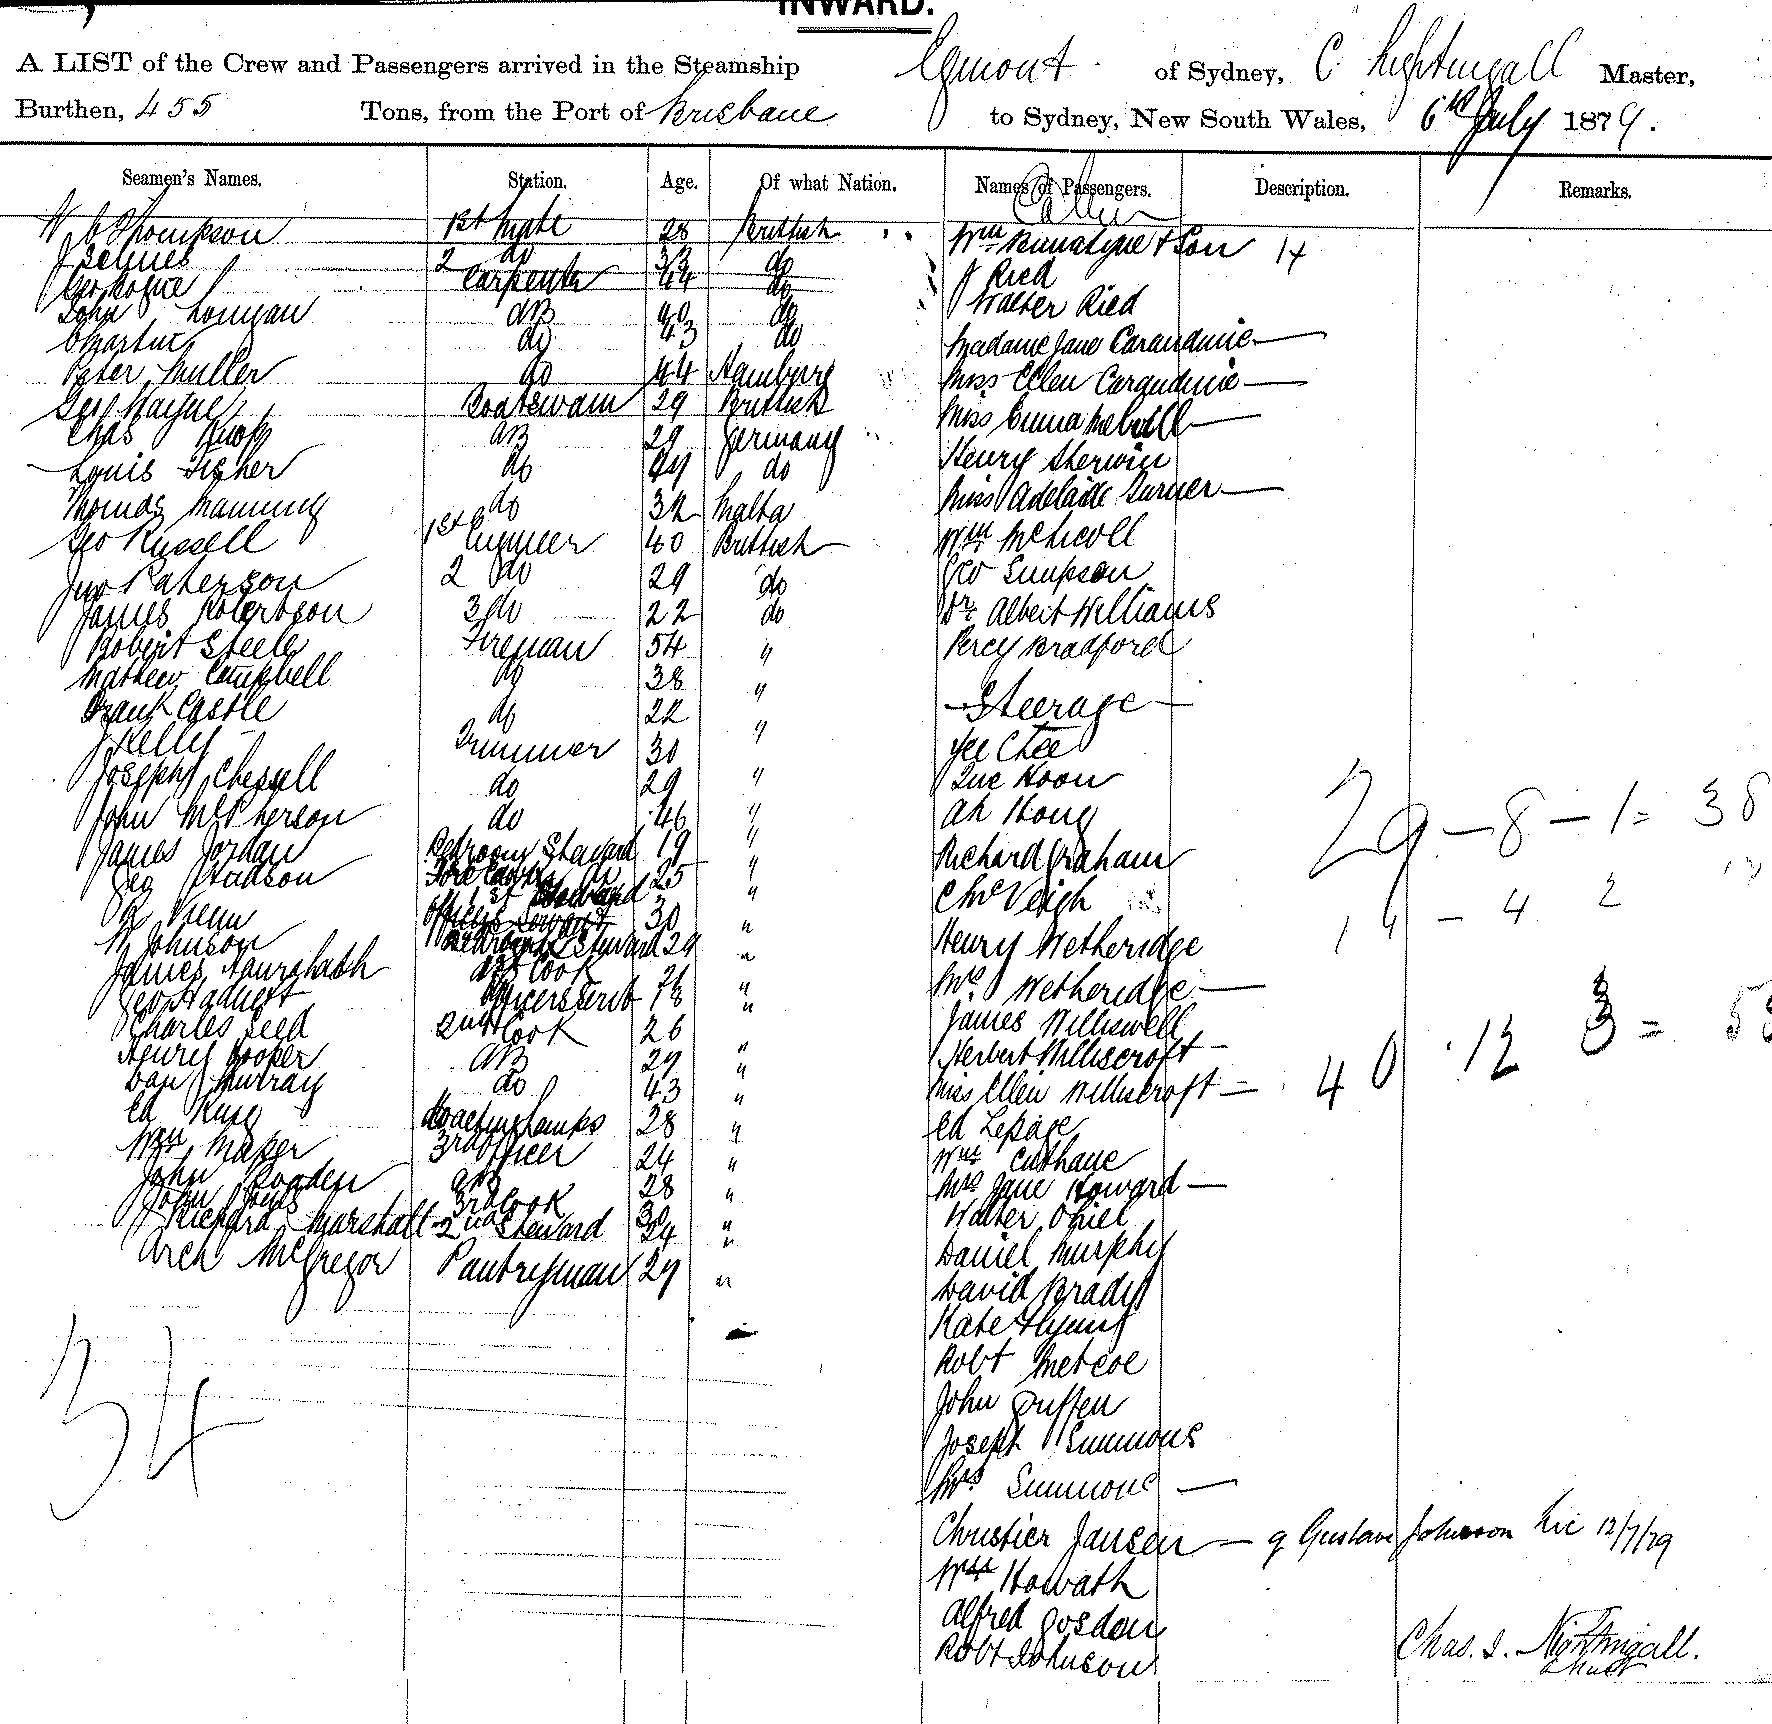 INWARD.
A LIST of the Crew and Passengers arrived in the Steamship Egmont of Sydney, C. Nightingall Master,
Burthen, 455 Tons, from the Port of Brisbane to Sydney, New South Wales, 6th July 1879.
Seamen's Names. Station. Age. Of what Nation. Names of Passengers. Description. Remarks.
W C Thompson 1st Mate 28 Brittish
2 do do
Carpenter 44 do
John AB 40 do
C Martin do 43 do
Peter Muller do 44 Hamburg
Geo Boatswain 29 Brittish
Chas AB 29 Germany
Louis Fisher do do
Thomas Manning do 32 Malta
Geo Russell 1st Engineer 40 Brittish
Jno Paterson 2 do 29 do
James Robertson 3 do 22 do
Robert Steele Fireman 54 "
Mathew Campbell do 38 "
Frank Castle do 22 "
J Kelly Trimmer 30 "
Joseph Chessell do 29 "
John McPherson do 46 "
James Jordan Bedroom Steward 19 "
Geo Hudson 25 "
30 "
W Johnson Steward 29 "
James Cook "
Geo Officers Servt 18 "
Charles Seed 2nd Cook 26 "
Henry Cooper AB 29 "
Dan Murray do 43 "
Ed King 28 "
Wm Maker 3rd Officer 24 "
John AB 28 "
John Jones 3rd Cook "
Richard Marshall 2nd Steward 24 "
Arch McGregor Pantryman 29 "
34
Cabin
Wm & Son 14
J Ried
Walter Ried
Madame Jane Carandinie —
Miss Ellen Carandinie —
Miss Emma Melvill —
Henry Sherwin
Miss Adelaide Turner —
Wm McNicoll
Geo Simpson
Dr Albert Williams
Percy Bradford
— Steerage —
Yee Chee
Que Koon
Ah Hong
Richard Graham
C McVeigh
Henry Wetheridge
Mrs Wetheridge —
James Williswell
Herbert Williscroft —
Miss Ellen Williscroft —
Ed Lepage
Wm Culhane
Mrs Jane Howard —
Walter Oniel
Daniel Murphy
David Brady
Kate Flynn
Robt Metcoe
John Duffen
Joseph Simmons
Mrs Simmons —
Christier Jansen — g Gustave Johnson Lic 12/7/79
Wm Howath
Alfred Gosden
Robt Johnson
29 — 8 — 1 = 38
14 — 4 2
40 . 12 3 =
Chas. J. Nightingall.